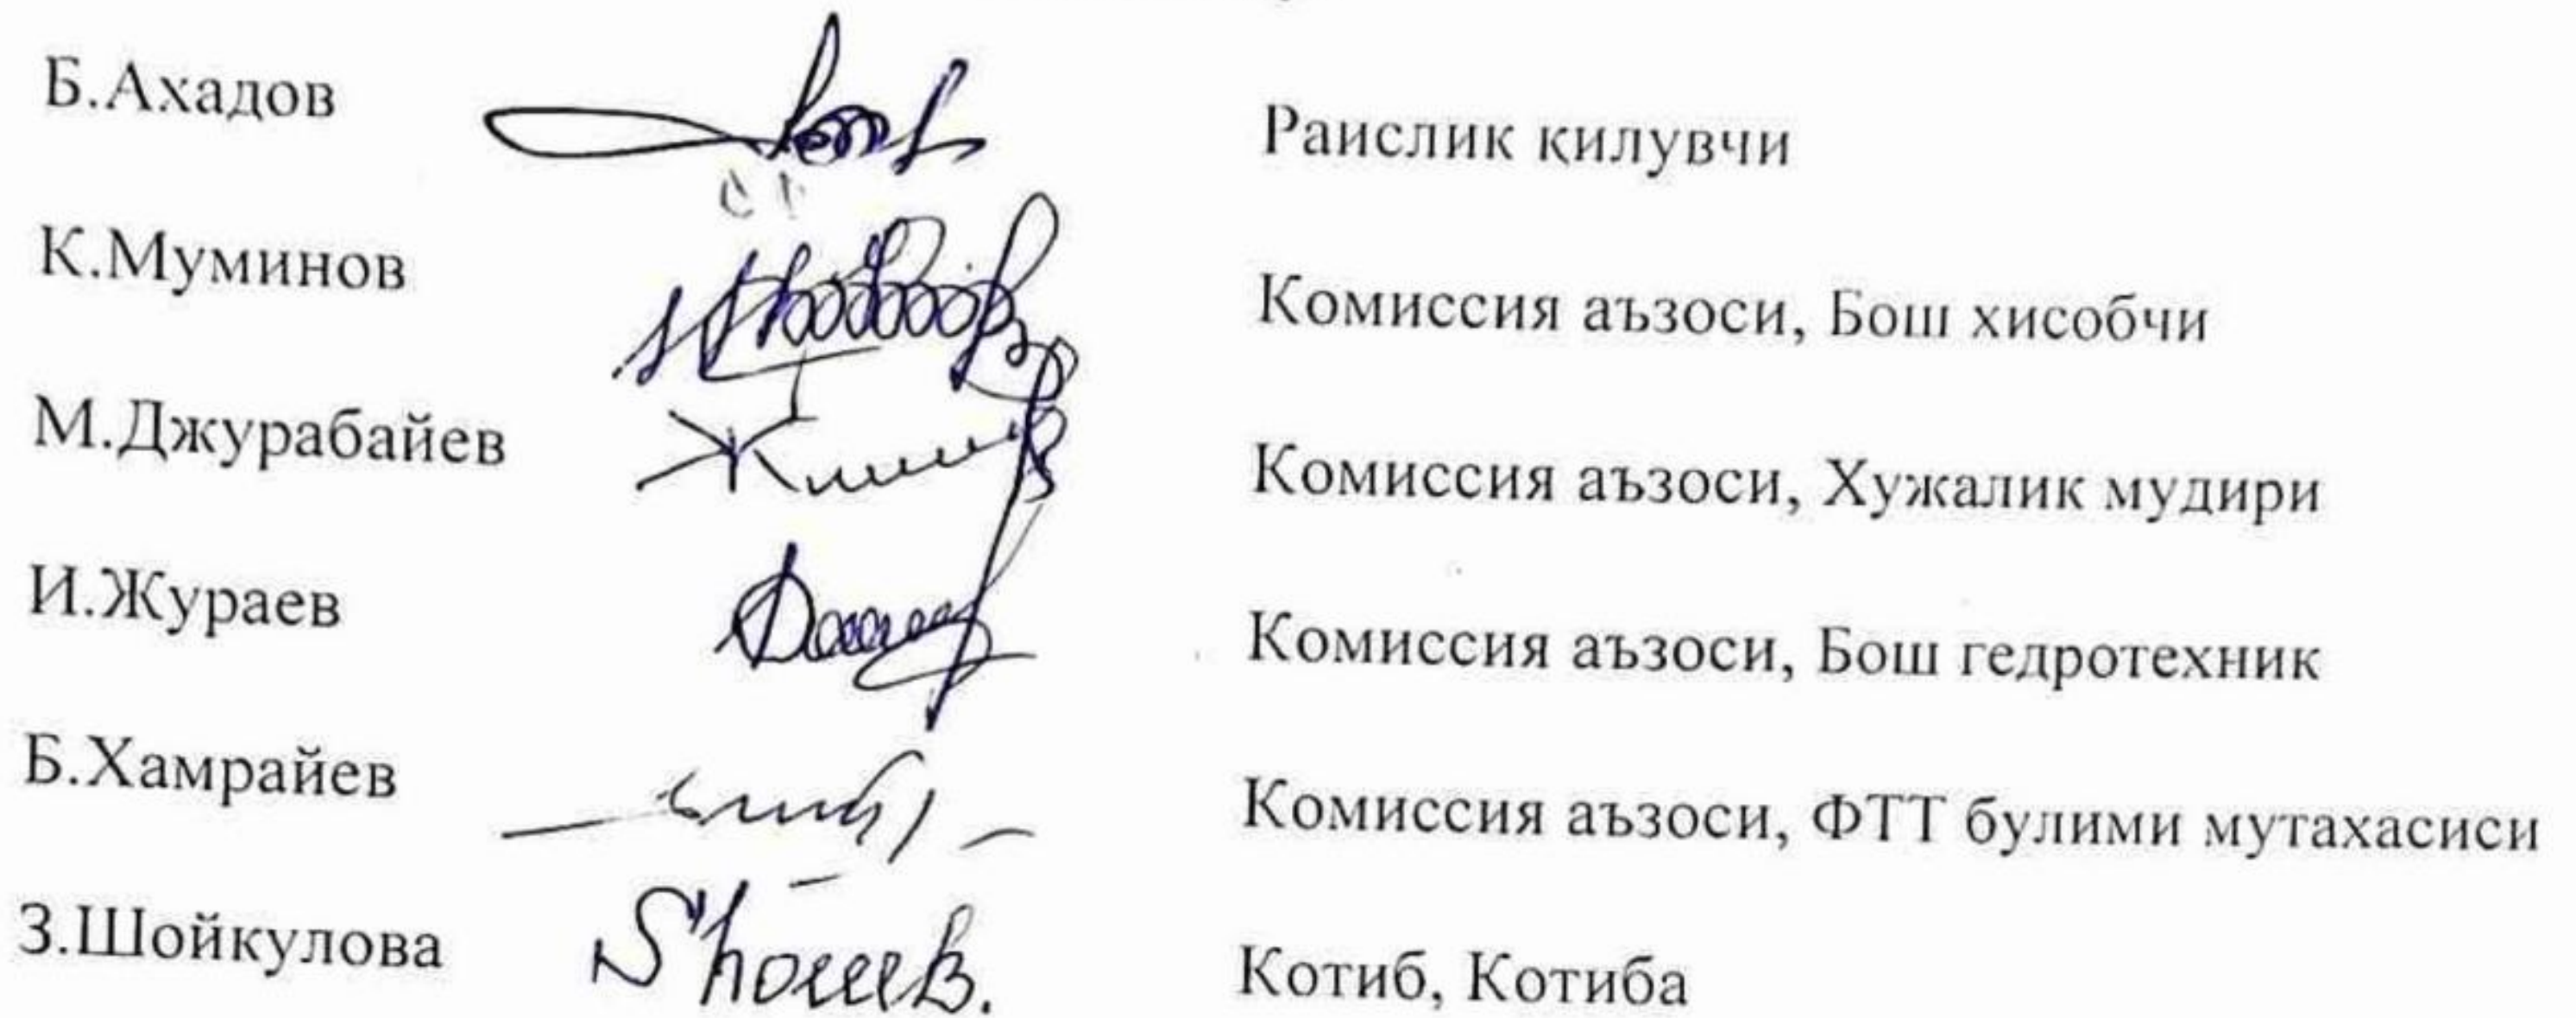 Б.Ахадов Раислик килувчи
К.Муминов Комиссия аъзоси, Бош хисобчи
М.Джурабайев Комиссия аъзоси, Хужалик мудири
И.Жураев Комиссия аъзоси, Бош гедротехник
Б.Хамрайев Комиссия аъзоси, ФТТ булими мутахасиси
З.Шойкулова Котиб, Котиба